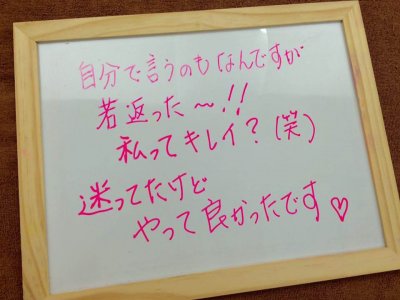 自分で言うのもなんですが
若返った〜!!
私ってキレイ?(笑)
迷ってたけど
やって良かったです♡